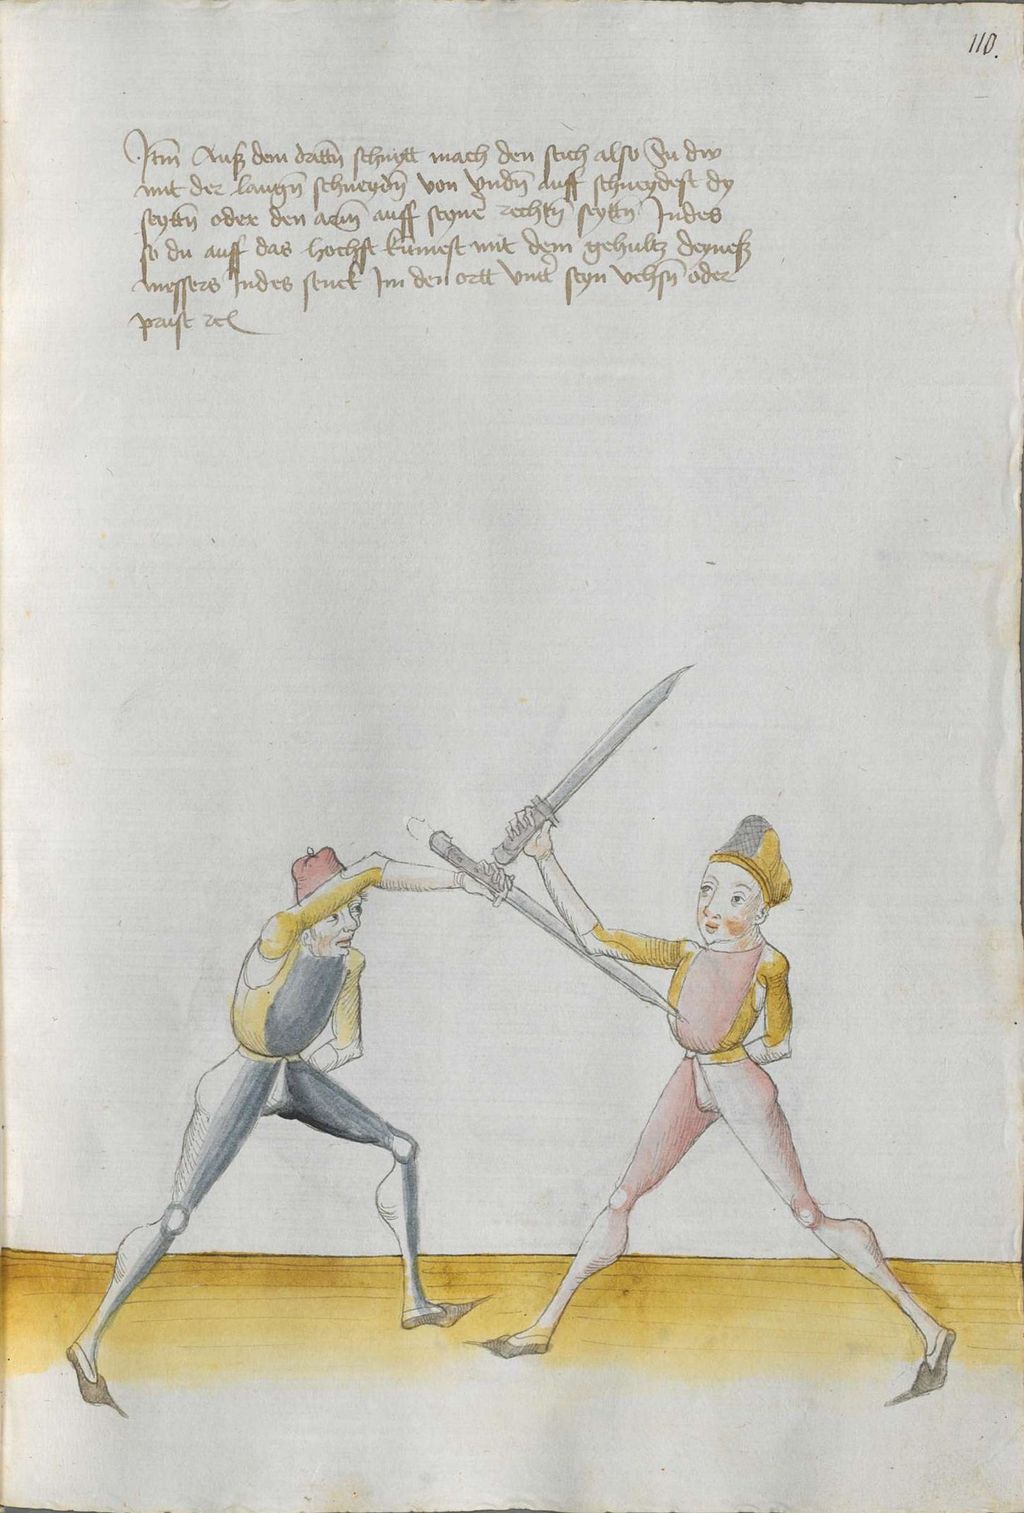 110.
Jtm Auß dem drittñ schnytt mach den stich also So dw
mit der langñ schneydñ von vndñ auff schneydest dy
seyttñ oder den arm auff seynẽ rechtñ seyttñ Jndes
so du auff das hochst kũmest mit dem gehultz deyneß
messers Jndes senck Jm den ortt vntṫ seyn vchsñ oder
prust rc